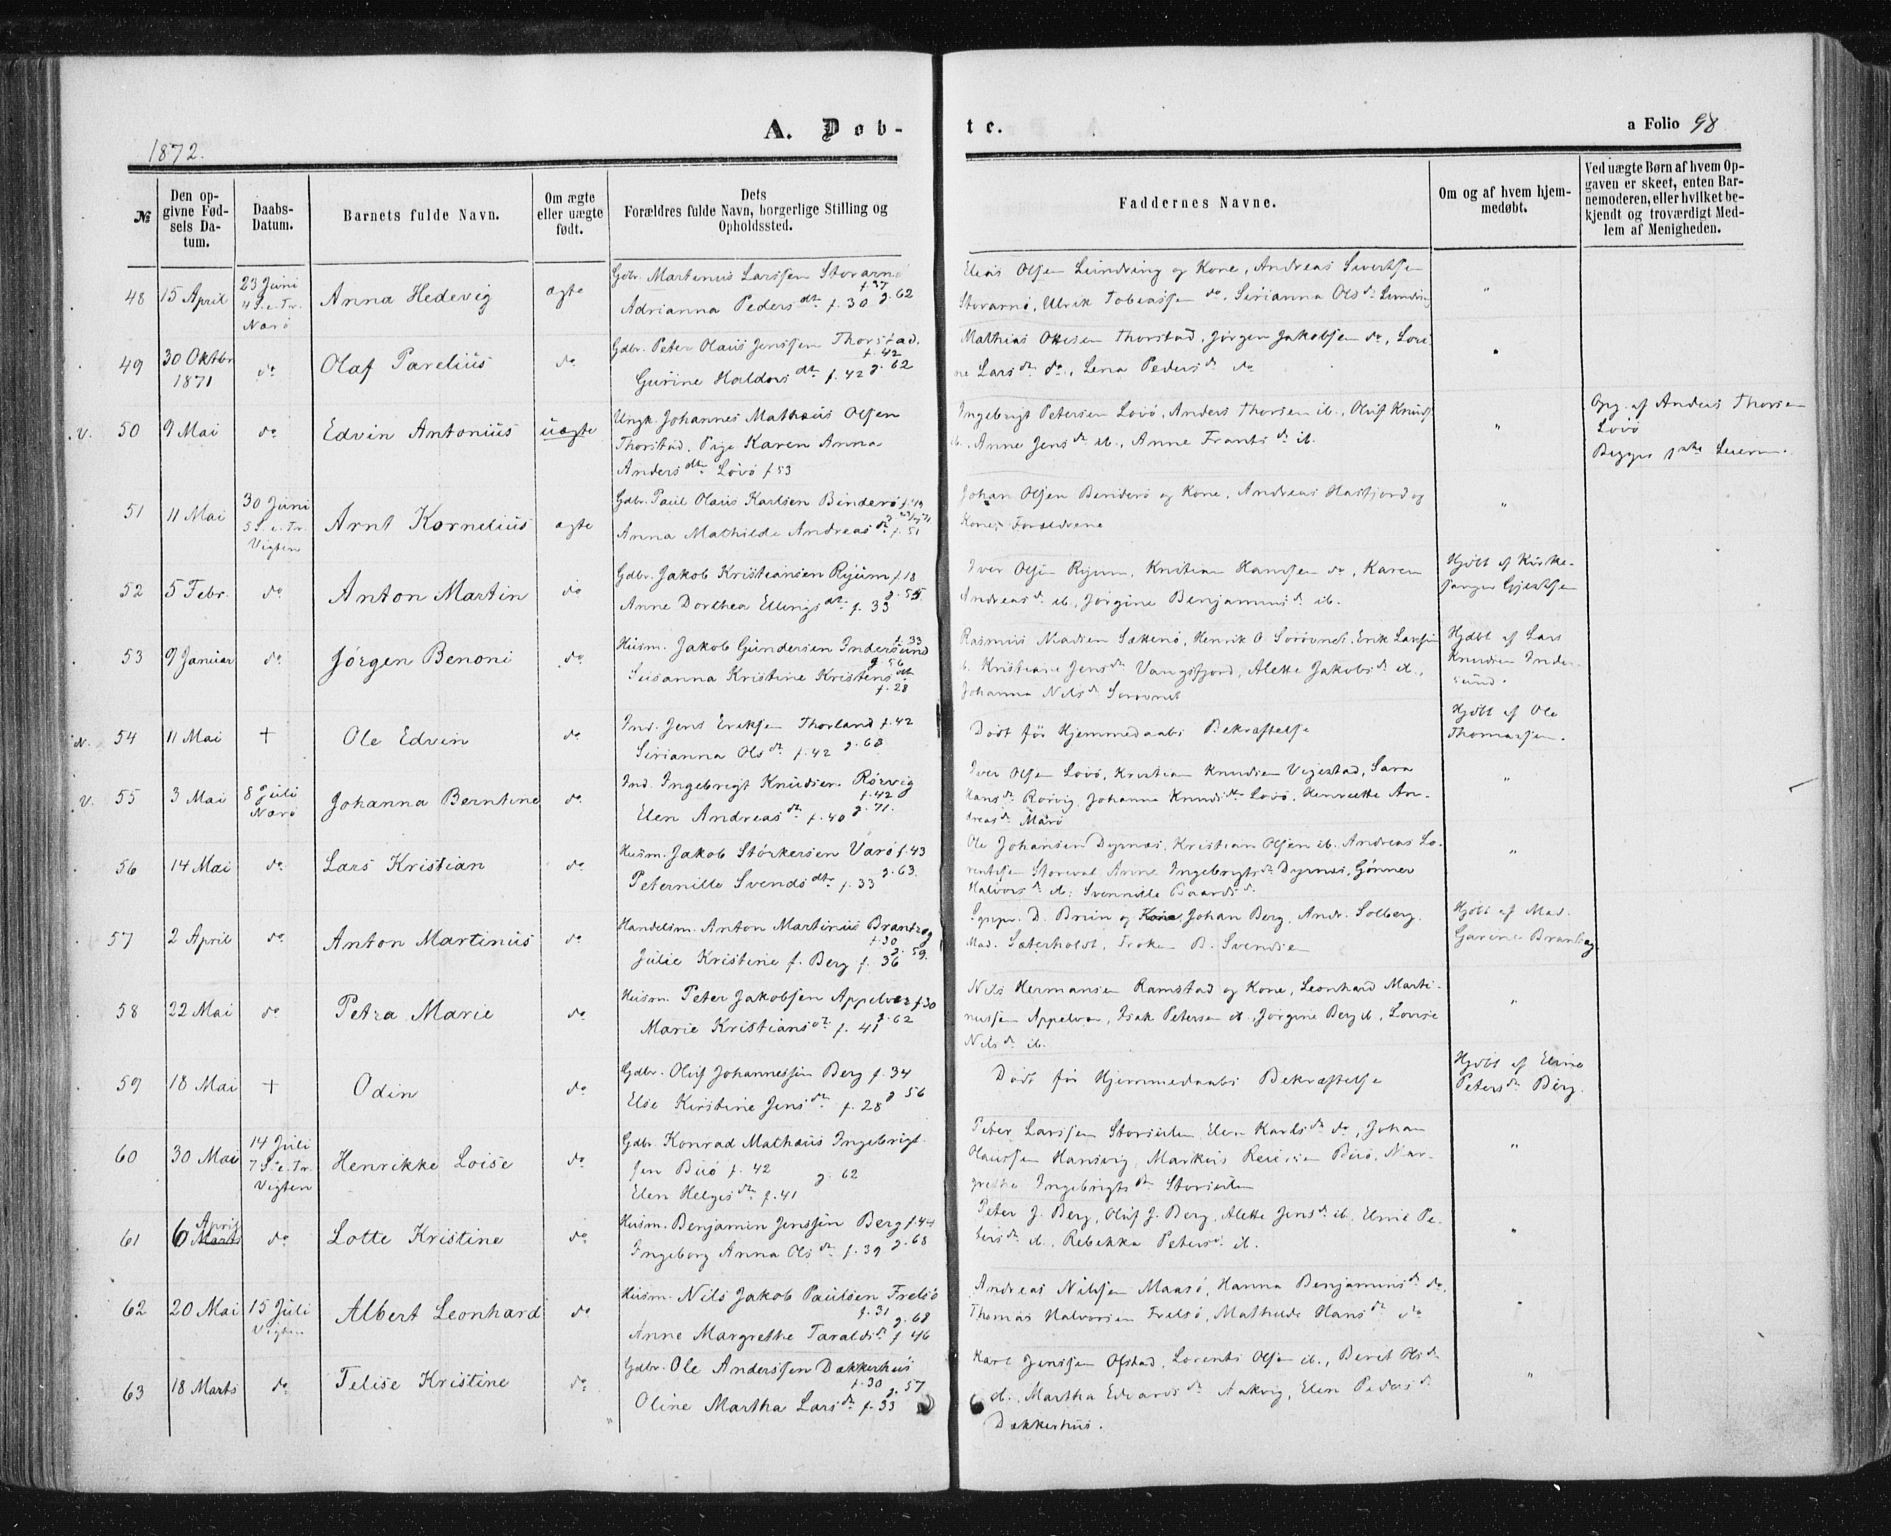 1872.
A. Døb-
te.
a Folio 98
№
Den op-
givne Fød-
sels Da-
tum.
Daabs-
Datum.
Barnets fulde Navn.
Om ægte
eller uægte
født.
Dets
Forældres fulde Navn, borgerlige Stilling og
Opholdssted.
Faddernes Navne.
Om og af hvem hjem-
medøbt.
Ved uægte Børn af hvem Op-
gaven er skeet, enten Bar-
nemoderen, eller hvilket be-
kjendt og troværdigt Med-
lem af Menigheden.
48 15 April
23 Juni
4 S. e. Tr.
Nærø
Anna Hedevig
ægte
Gdbr. Martenus Larssen Storarnø
f. 37
Adrianna Pedersdtr f. 30 g. 62
Elias Olsen Lundring og Kone, Andreas Sivertsen
Storarnø, Ulrik Tobiassen do, Sirianna Olsdr Lundring
"
49
30 Oktbr
1871
do
Olaf Parelius
do
Gdbr. Peter Olaus Jenssen Thorstad.
f. 42
Gurine Haldorsdtr f. 42 g. 62
Mathias Ottesen Thorstad, Jørgen Jakobsen do, Lovi
ne Larsdr do, Lena Pedersdr do
"
V. 50 9 Mai
do
Edvin Antonius
uægte
Ungk. Johannes Mathæus Olsen
Thorstad. Pige Karen Anna
Andersdtr Lovø f. 53
Ingebrigt Petersen Lovø, Anders Thorsen ib., Oluf Knuds
ib., Anne Jensdr ib., Anne Frantsdr ib.
"
Opg. af Anders Thorsen
Lovø
Begges 1ste Leierm.
51 11 Mai
30 Juni
5 S. e. Tr.
Vigten
Arnt Kornelius
ægte
Gdbr. Paul Olaus Karlsen Binderø f. 49
Anna Mathilde Andreasdr f. 51
Johan Olsen Benderø og Kone, Andreas Hasfjord og
Kone, Forældrene
"
52 5 Febr.
do
Anton Martin
do
Gdbr. Jakob Kristiansen Ryum f. 18
g. 55
Anne Dorthea Ellingsdtr f. 33
Iver Olsen Ryum, Kristian Hanssen do, Karen
Andreasdr ib, Jørgine Benjaminsdr ib.
Hjdbt af Kirke-
sanger Gjertsen
53 9 Januar
do
Jørgen Benoni
do
f. 33
Husm. Jakob Gundersen Indersund
g. 56
Susanna Kristine Kristensdtr
f. 28
Rasmus Madsen Sætternø, Henrik O Sørøvnet, Erik Larssen
ib. Kristiane Jensdr Vangsfjord, Alette Jakobsdr ib.,
Johanna Nilsdr Sørøvnet
Hjdbt af Lars
Knudsen Inder-
sund.
N. 54 11 Mai
+
Ole Edvin
do
Ind. Jens Eriksen Thorland f. 42
Sirianna Olsdtr f. 42 g. 68
Dødt før Hjemmedaabs Bekræftelse
Hjdbt af Ole
Thomassen.
V. 55 3 Mai
8 Juli
Nærø
Johanna Berntine
do
Ind. Ingebrigt Knudsen Rørvig
f. 42
Elen Andreasdtr f. 40 g. 71.
Iver Olsen Lovø, Kristian Knudsen Vigestad, Sara
Hansdr Rørvig, Johanna Knudsdtr Lovø, Henriette An-
dreasdr Marø
"
56 14 Mai
do
Lars Kristian
do
Husm. Jakob Størkersen Varø f. 43
Peternille Svendsdtr f. 33 g. 63.
Ole Johansen Dyrnæs, Kristian Olsen ib. Andreas Lo-
rentsen Storeval, Anne Ingebrigtsdr Dyrnæs, Gønner
Halvorsdr ib. Svennilla Baardsdr
"
57 2 April
do
Anton Martinus
do
Handelsm. Anton Martinus Brantzeg
f. 30
g. 59.
Julie Kristine f. Berg f. 36
Sgnpr. D. Bruun og Kone, Johan Berg, Andr. Solberg.
Mad. Sæterholdt, Frøken B. Svendsen
Hjdbt af Mad.
Garine Brantzeg
58 22 Mai
do
Petra Marie
do
Husm. Peter Jakobsen Appelvær f. 30
Marie Kristiansdr f. 41 g. 62
Nils Hermansen Ramstad og Kone, Leonhard Marti-
nussen Appelvær, Isak Petersen ib, Jørgine Berg ib, Lovise
Nilsdr ib.
"
59 18 Mai
+
Odin
do
Gdbr. Oluf Johannessen Berg f. 34
Else Kirstine Jensdtr f. 28 g 56
Dødt før Hjemmedaabs Bekræftelse
Hjdbt af Eline
Petersdr Berg.
60 30 Mai
14 Juli
7 S. e. Tr.
Vigten
Henrikke Loise
do
Gdbr. Konrad Mathæus Ingebrigt
sen Buø f. 42
g. 62
Elen Helgesdtr f. 41
Peter Larssen Storsulen, Elen Karlsdr do, Johan
Olaussen Hansvig, Markus Reiersen Buø, Mar-
grethe Ingebrigtsdtr Storsulen
"
61
6 April
Marts
do
Lotte Kristine
do
Husm. Benjamin Jenssen Berg f. 44
Ingeborg Anna Olsdtr f. 39 g. 68
Peter J. Berg, Oluf J. Berg, Alette Jensdr ib, Eline Pe-
tersdr ib, Rebekka Petersdr ib.
"
62 20 Mai
15 Juli
Vigten
Albert Leonhard
do
Husm. Nils Jakob Paulsen Frelsø
f. 31
g. 68
Anne Margrethe Taraldsdr f. 46
Andreas Nilssen Maasø, Hanna Benjaminsdr do,
Thomas Halvorsen Frelsø, Mathilde Hansdtr do
"
63 18 Marts
do
Telise Kristine
do
"
Gdbr. Ole Anderssen Dækkerhus
f. 30
g. 57
Oline Martha Larsdr f. 33
Karl Jenssen Ofstad, Lorents Olsen ib., Beret Olsdr
ib., Martha Edvardsdr Aakvig, Elen Pedersdr
Dækkerhus.
"